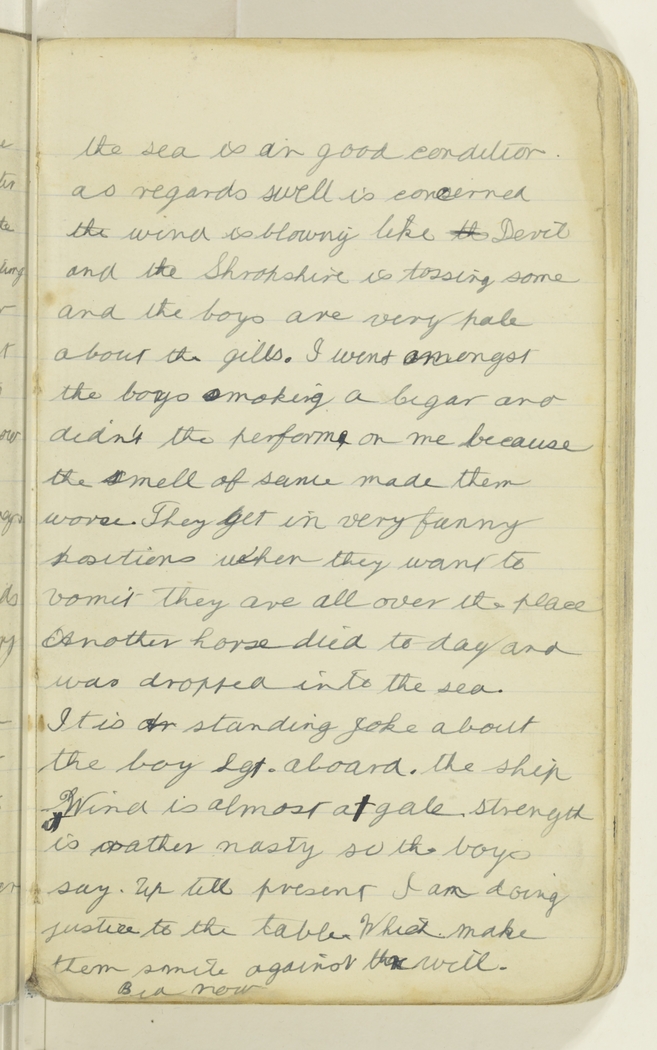 the sea is in good condition.
as regards swell is concerned
the wind is blowing like th Devil
and the Shropshire is tossing some
and the boys are very pale
about the gills. I went amongst
the boys smoking a Cegar and
didn't the perform on me because
the smell of same made them
worse. They get in very funny
positions when they want to
vomit they are all over the place
Another horse died to day and
was dropped into the sea.
It is standing joke about
the boy Sgt. aboard. the ship
Wind is almost at gale. strength
is rather nasty so the boys
say. Up till present I am doing
justice to the table. Which make
them smile against the will.
now